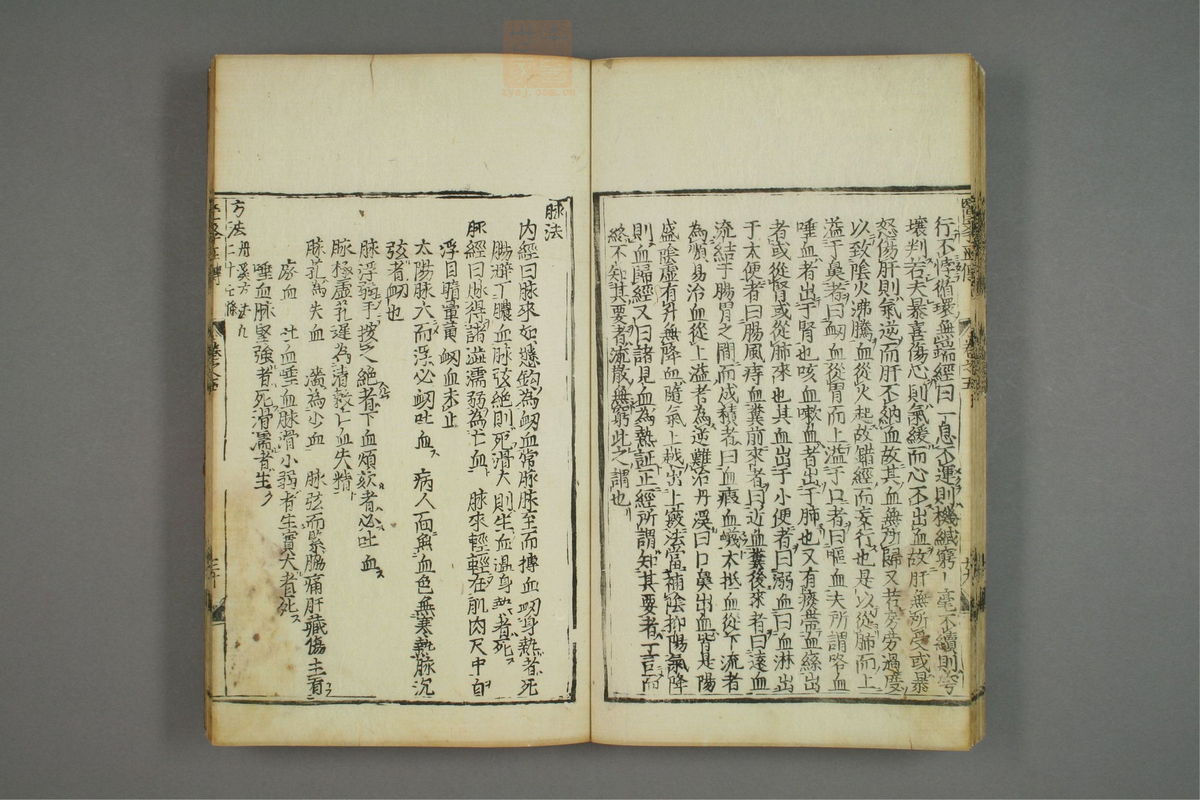 行不悖循環無端經曰一息不運則機緘窮一毫不續則穹
壤判若夫暴喜傷心則氣緩而心不出血故肝無所受或暴
怒傷肝則氣逆而肝不納血故其血無所歸又若房勞過度
以致陰火沸騰血從火起故錯經而妄行也是以從肺而上
溢于鼻者曰衂血從胃而上溢于口者曰嘔血夫所謂咯血
唾血者出于腎也咳血嗽血者出于肺也又有痰帶血絲出
者或從腎或從肺來也其血出于小便者曰溺血曰血淋出
于太便者曰腸風痔血糞前來者曰近血糞後來者曰遠血
流結于腸胃之間而成積者曰血瘕血 大抵血從下流者
為順易治血從上溢者為逆難治丹溪曰口鼻出血皆是陽
盛陰虛有升無降血隨氣上越出上竅法當補陰抑陽氣降
則血歸經又曰諸見血為熱証正經所謂知其要者一言而
終不知其要者流散無窮此之謂也
脉法
內經曰脉來如懸鈎為衂血常脉脉至而搏血衂身熱者死
腸澼下膿血脉弦絕則死滑大則生血溫身熱者死
脈經曰脉得諸澁濡弱為亡血 脉來輕輕在肌肉尺中自
浮目睛暈黃 衂血未止
太陽脉大而浮必衂吐血 病人面無血色無寒熱脉沉
弦者衂也
脉浮弱手按之絕者下血煩欬者必吐血
脉極虛芤遲為清穀亡血失精
脉芤為失血 濇為少血 脉弦而緊脇痛肝藏傷主有
瘀血 吐血唾血脉滑小弱者生實大者死
唾血脉堅強者死滑濡者生
方法 丹溪方法凡
二十七條